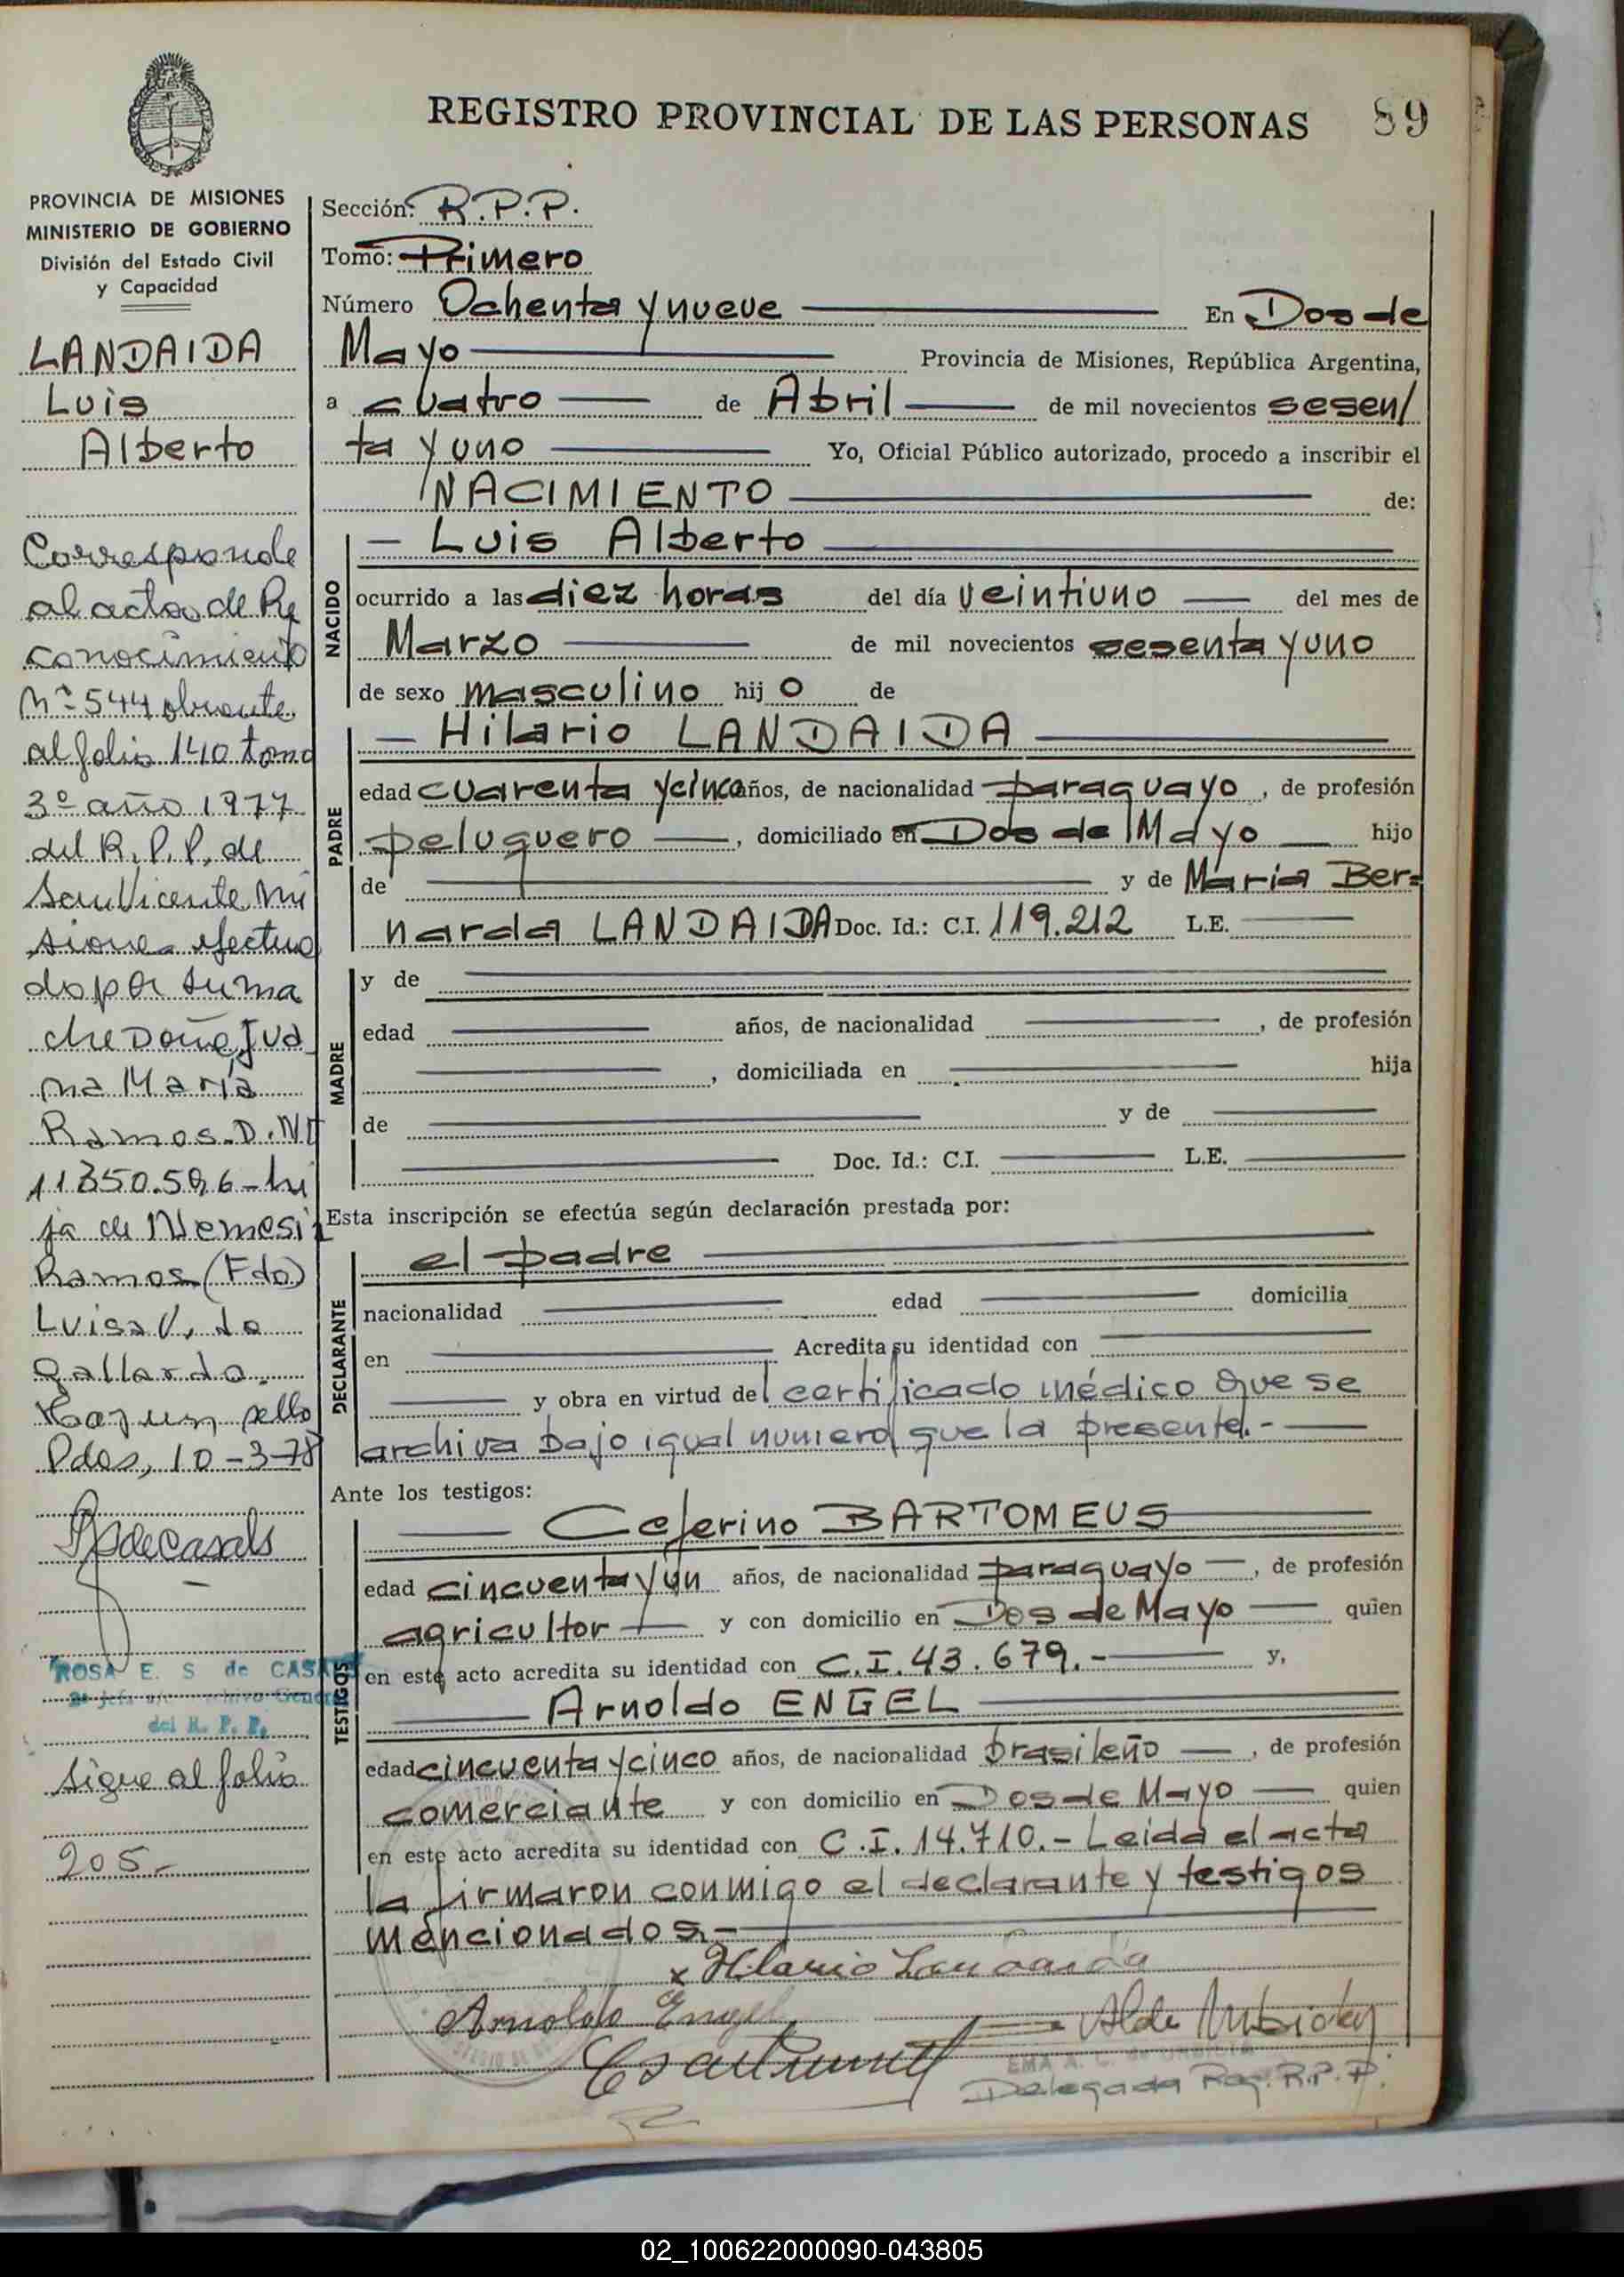 REGISTRO PROVINCIAL DE LAS PERSONAS 89
PROVINCIA DE MISIONES
MINISTERIO DE GOBIERNO
División del Estado Civil
y Capacidad
LANDAIDA
Luis
Alberto
Corresponde
al acta de Re
conocimiento
Nº 544 obrante
al folio 140 tomo
3º año 1977
del R.P.P. de
San Vicente Mi
siones efectua
do por su ma
dre Doña Jua
na María
Ramos D.NI
11850.596- hi
ja de Nemesi
Ramos (Fdo)
Luisa V. de
Gallardo.
sello
Pdas, 10-3-78
ROSA E. S de CASALS
2ª Jefa a/c Archivo General
del R. P. P.
Sigue al folio
205-
Sección: R.P.P.
Tomo: Primero
Número Ochenta y nueve En Dos de
Mayo Provincia de Misiones, República Argentina,
a cuatro de Abril de mil novecientos sesen/
ta y uno Yo, Oficial Público autorizado, procedo a inscribir el
NACIMIENTO de:
NACIDO
- Luis Alberto
ocurrido a las diez horas del día veintiuno del mes de
Marzo de mil novecientos sesenta y uno
de sexo masculino hijo de
PADRE
- Hilario LANDAIDA
edad cuarenta y cinco años, de nacionalidad paraguayo, de profesión
peluquero, domiciliado en Dos de Mayo hijo
de y de María Ber=
narda LANDAIDA Doc. Id.: C.I. 119.212 L.E.
MADRE
y de
edad años, de nacionalidad , de profesión
, domiciliada en hija
de y de
Doc. Id.: C.I. L.E.
Esta inscripción se efectúa según declaración prestada por:
DECLARANTE
el padre
nacionalidad edad domicilia
en Acredita su identidad con
y obra en virtud del certificado médico que se
archiva bajo igual numero que la presente.-
Ante los testigos:
TESTIGOS
Ceferino BARTOMEUS
edad cincuenta y un años, de nacionalidad paraguayo, de profesión
agricultor y con domicilio en Dos de Mayo quien
en este acto acredita su identidad con C.I. 43.679.- y,
Arnoldo ENGEL
edad cincuenta y cinco años, de nacionalidad brasileño, de profesión
comerciante y con domicilio en Dos de Mayo quien
en este acto acredita su identidad con C.I. 14.710.- Leida el acta
la firmaron conmigo el declarante y testigos
mencionados.-
x Hilario Landaida
Arnoldo Engel
Delegada Reg. R.P.P.
02_100622000090-043805